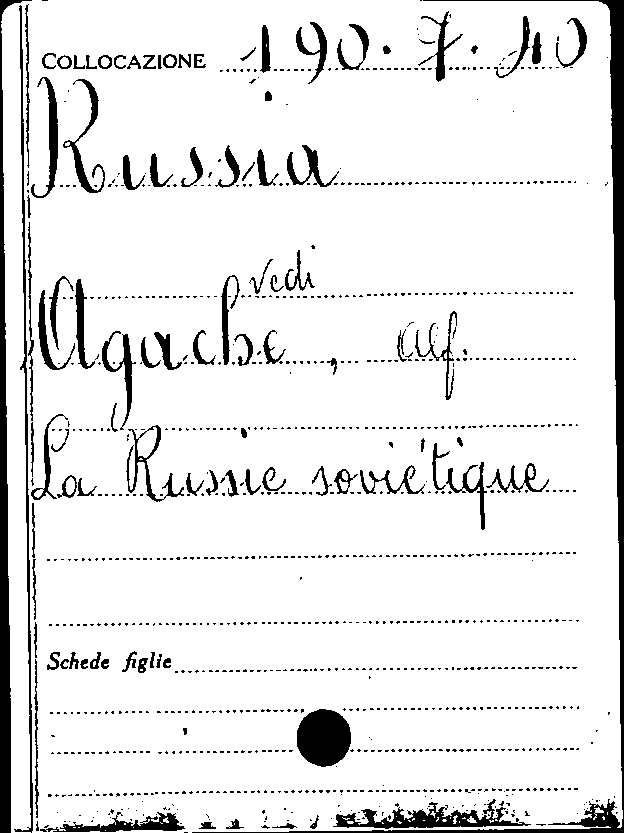 COLLOCAZIONE 190.7.40
Russia
vedi
Agache, Alf.
La Russie soviétique
Schede figlie